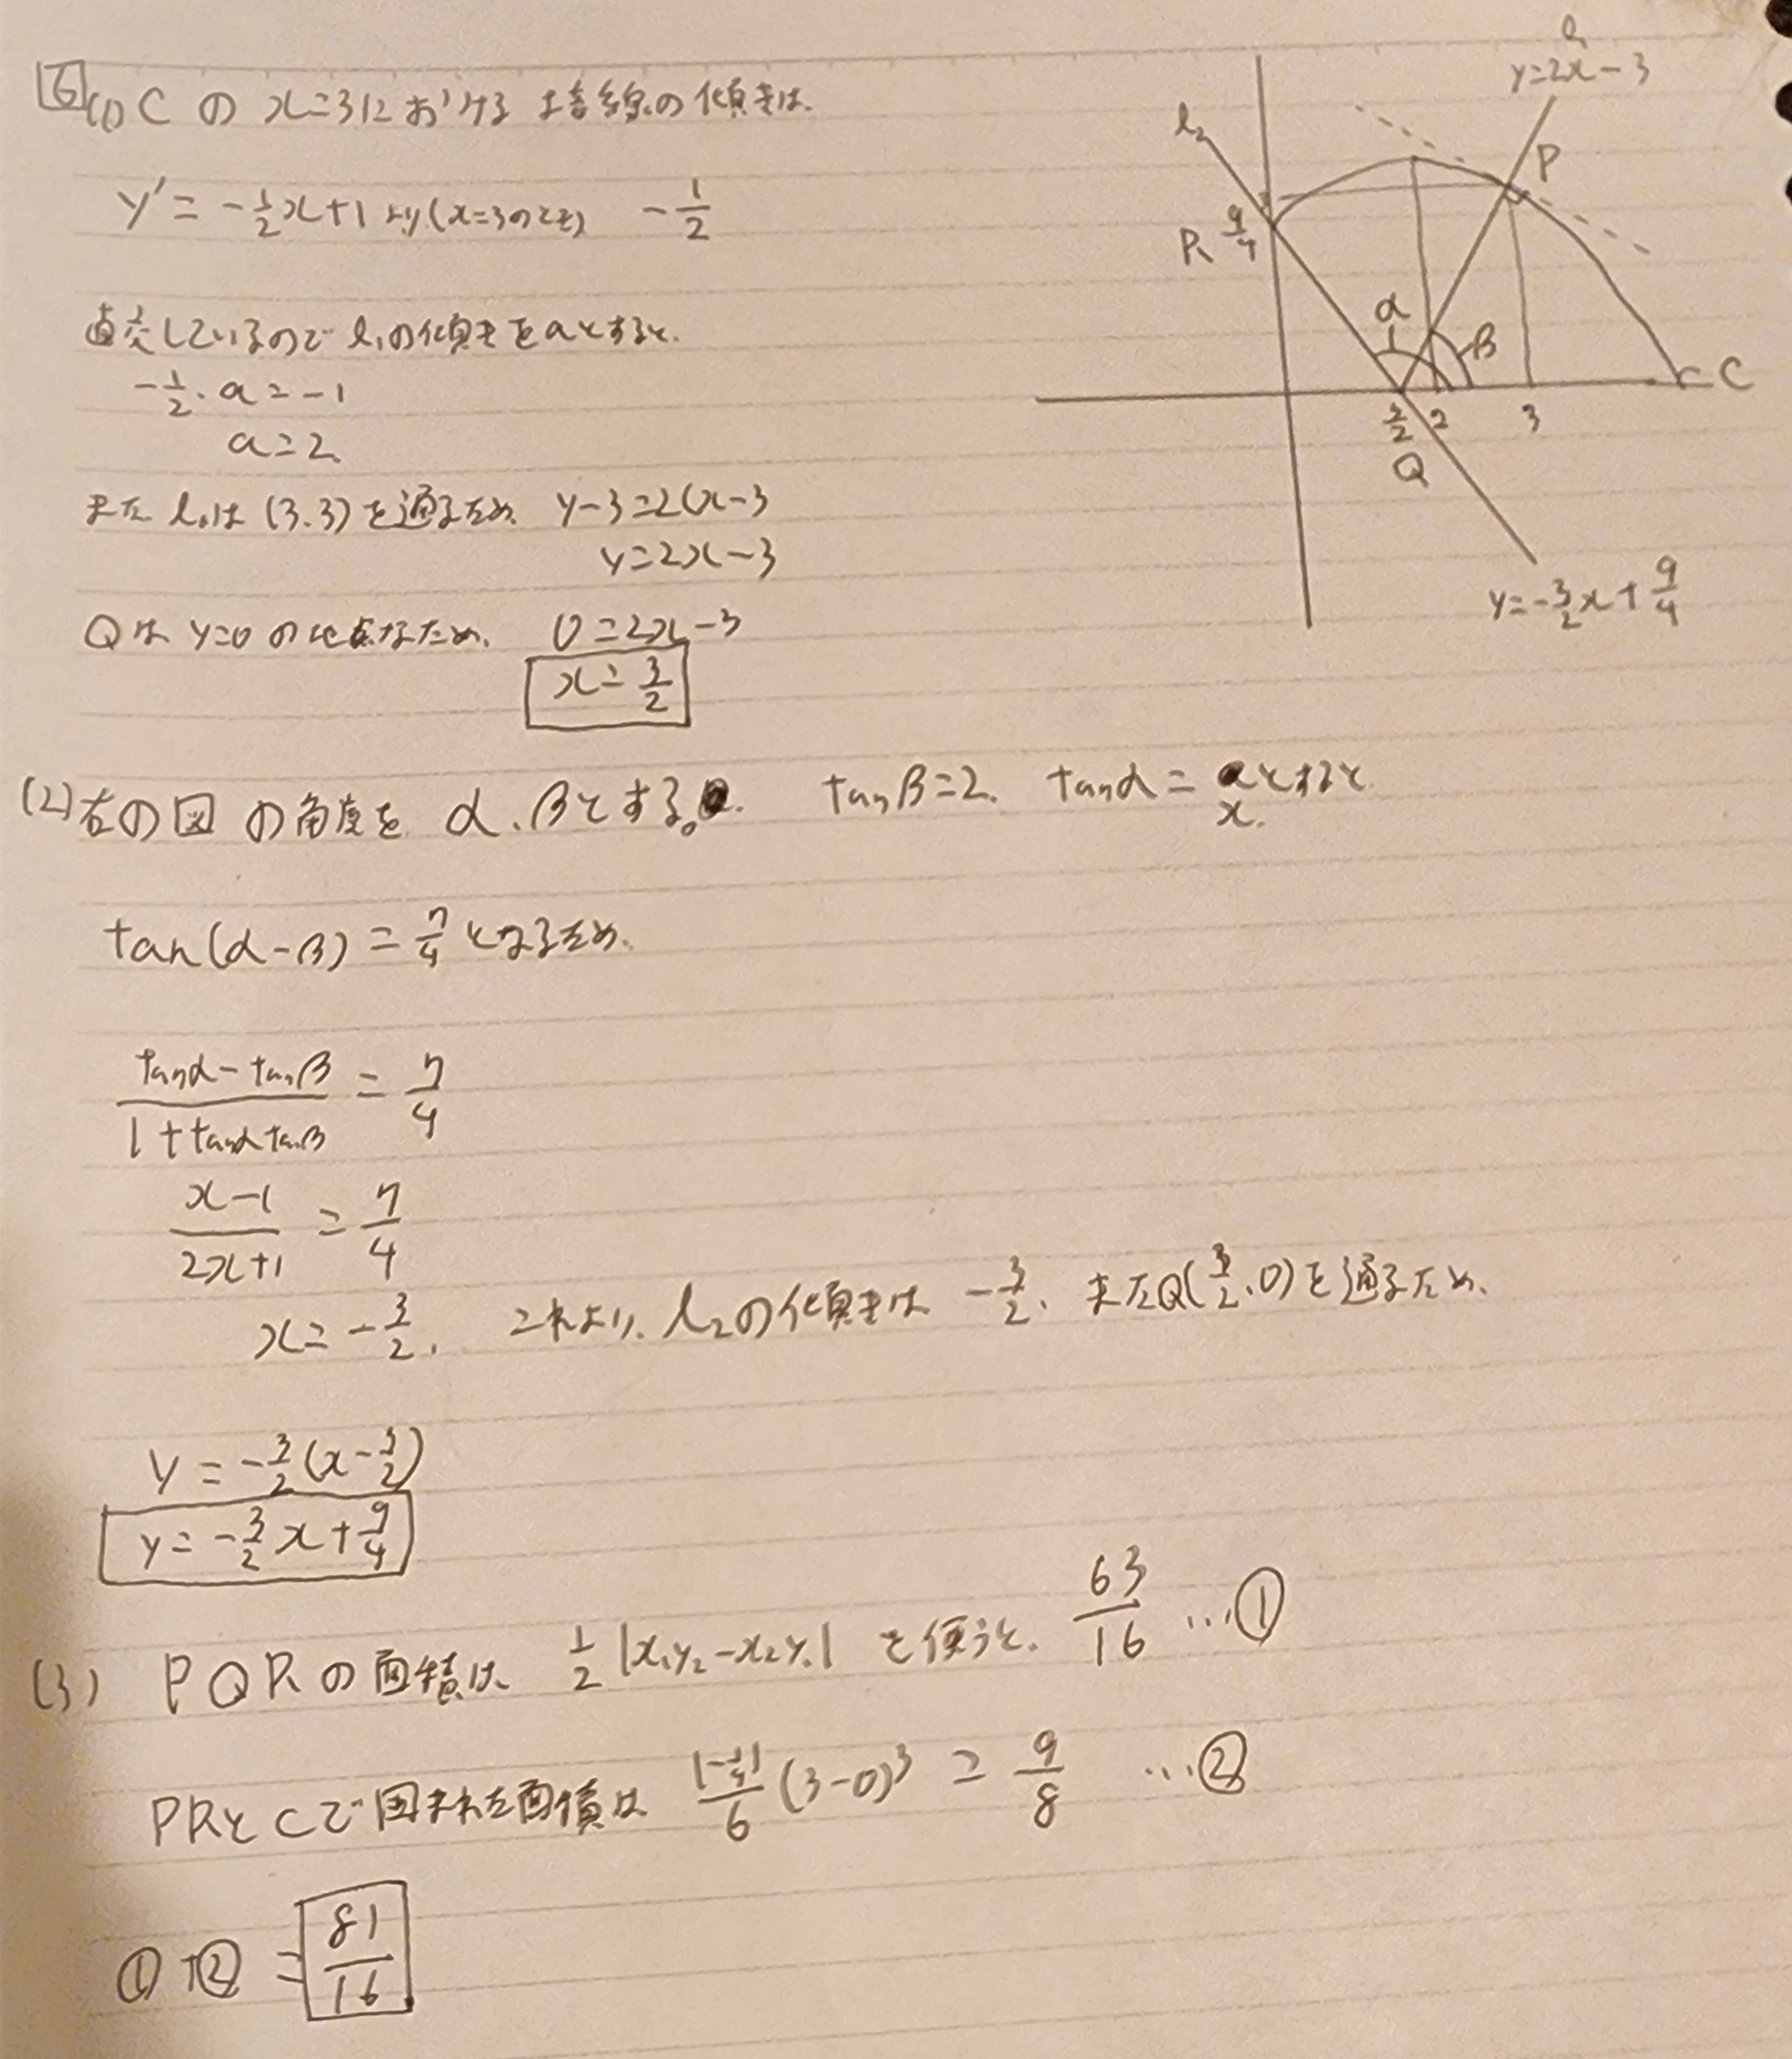 6 (1) C の x=3における接線の傾きは、
y' = -1/2x+1 より(x=3のとき) -1/2
直交しているので l₁の傾きをaとすると、
-1/2・a = -1
a=2
また l₁は (3.3)を通るため y-3=2(x-3
y=2x-3
Qは y=0 の地点なため、 0=2x-3
x=3/2
(2)右の図 の角度を α、βとする。 tanβ=2. tanα= xとすると
tan(α-β) = 7/4 となるため、
(tanα-tanβ)/(1+tanαtanβ) = 7/4
(x-1)/(2x+1) = 7/4
x=-3/2. これより、l₂の傾きは -3/2、またQ(3/2、0)を通るため、
y = -3/2(x-3/2)
y = -3/2x+9/4
(3) PQRの面積は 1/2|x₁y₂-x₂y₁| を使うと、 63/16 …①
PRとCで囲まれた面積は |-1/4|/6 (3-0)³ = 9/8 …②
①+② = 81/16
l
y=2x-3
l₂
P
R 9/4
α
β
C
3/2 2 3
Q
y=-3/2x+9/4